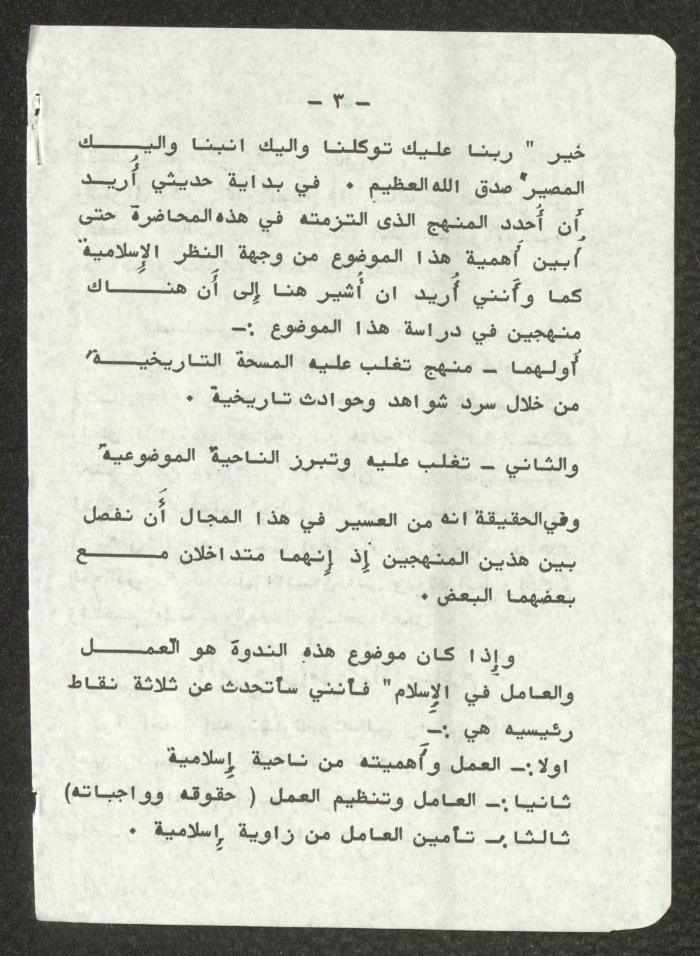 - ٣ -
خير " ربنا عليك توكلنا واليك انبنا واليك
المصير" صدق الله العظيم . في بداية حديثي أريد
أن أحدد المنهج الذى التزمته في هذه المحاضرة حتى
أبين أهمية هذا الموضوع من وجهة النظر الإسلامية
كما وأنني أريد ان أشير هنا إلى أن هناك
منهجين في دراسة هذا الموضوع :-
أولهما - منهج تغلب عليه المسحة التاريخية
من خلال سرد شواهد وحوادث تاريخية .
والثاني - تغلب عليه وتبرز الناحية الموضوعية
وفي الحقيقة انه من العسير في هذا المجال أن نفصل
بين هذين المنهجين إذ إنهما متداخلان مع
بعضهما البعض .
وإذا كان موضوع هذه الندوة هو "العمل
والعامل في الإسلام" فأنني سأتحدث عن ثلاثة نقاط
رئيسيه هي :-
اولا :- العمل وأهميته من ناحية إسلامية
ثانيا :- العامل وتنظيم العمل ( حقوقه وواجباته)
ثالثا :- تأمين العامل من زاوية إسلامية .